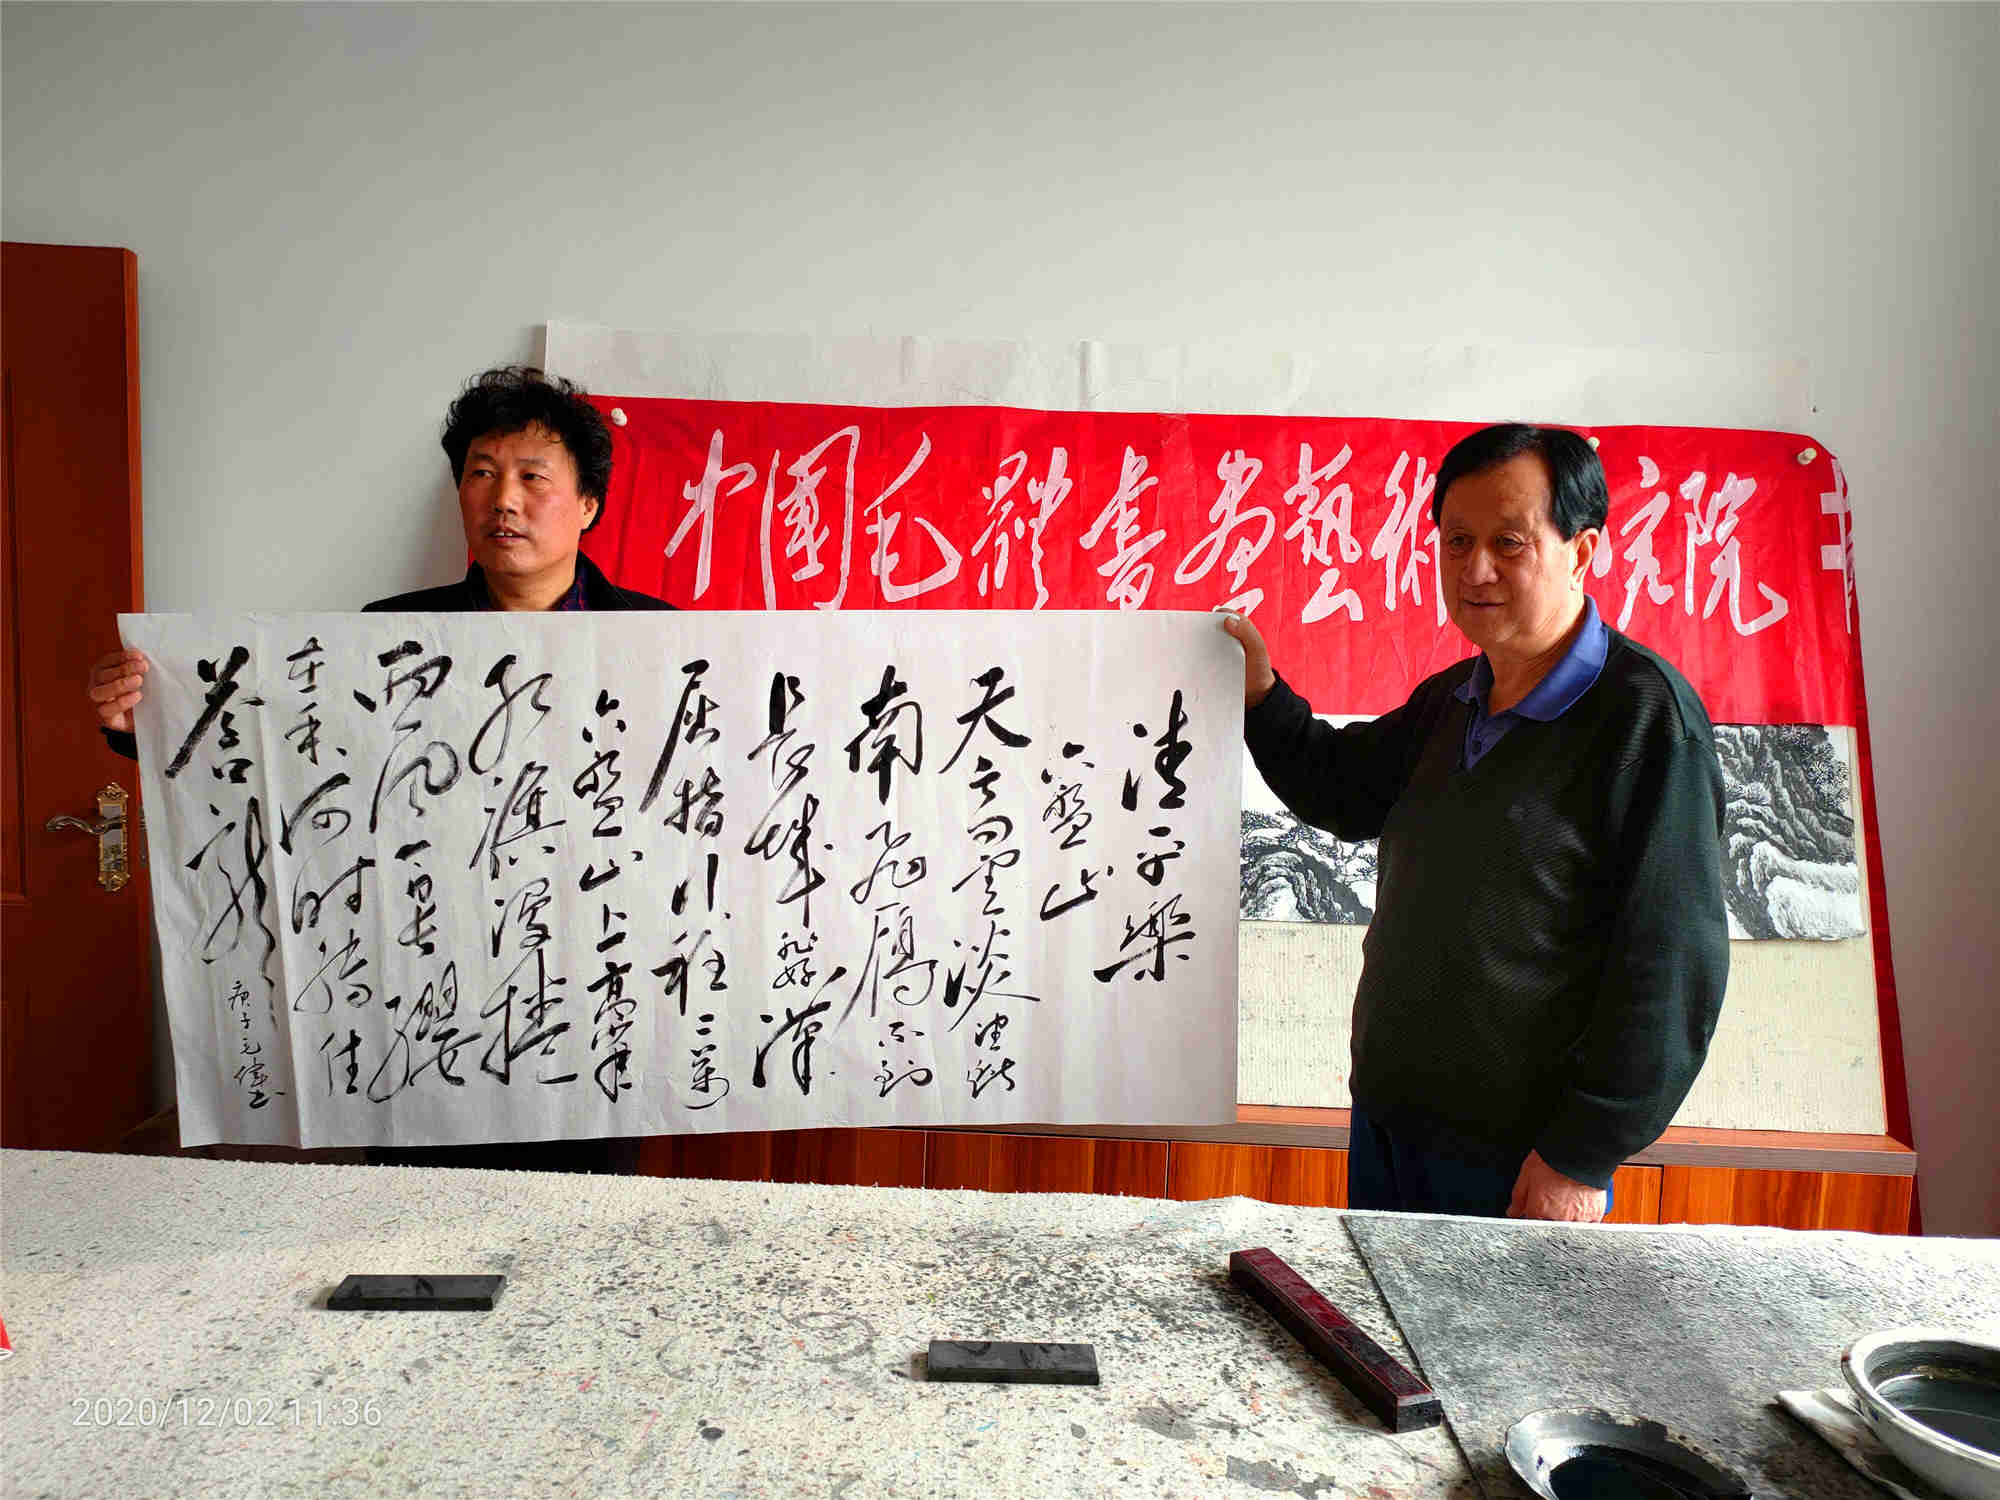 中國毛體書畫藝術究院
清平樂
六盤山
天高雲淡望斷
南飛雁不到
長城非好漢
屈指行程二萬
六盤山上高峯
紅旗漫捲
西風今日長纓
在手何時縛住
蒼龍
庚子
2020/12/02 11:36